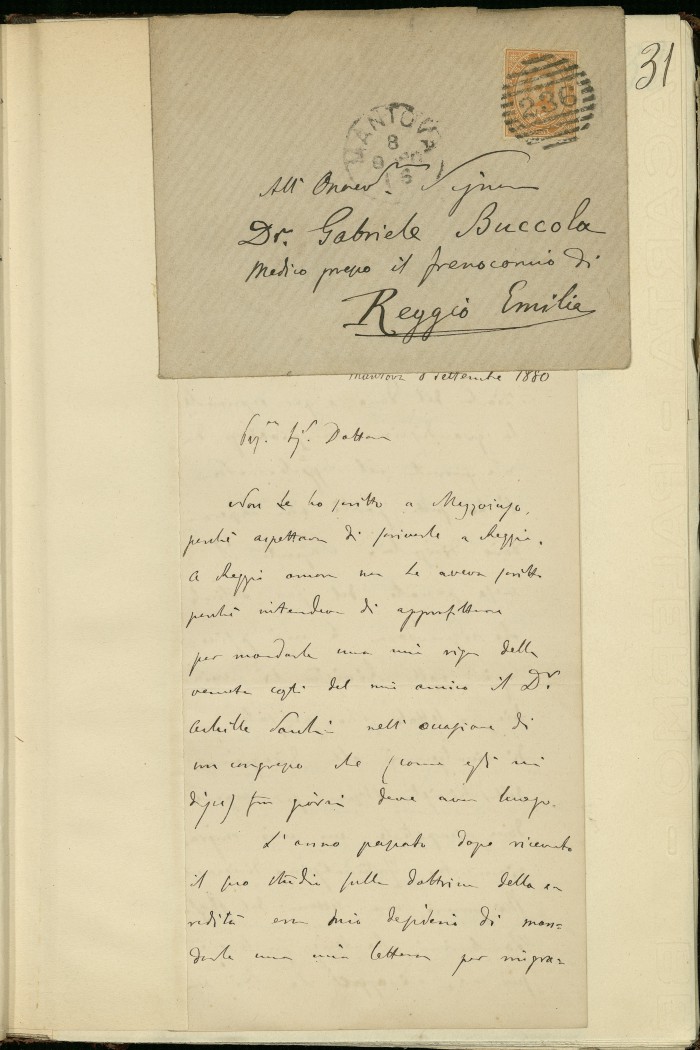 31
236
MANTOVA
8
9
All' Onorev. Signor
Dr. Gabriele Buccola
Medico presso il frenocomio di
Reggio Emilia
Mantova 8 settembre 1880
Sig. Dottore
Non Le ho scritto a Mezzojuso,
perchè aspettava di scriverle a Reggio.
A Reggio ancora non Le aveva scritto
perchè intendeva di approfittare
per mandarle una mia riga della
venuta costì del mio amico il Dr.
Achille nell'occasione di
un congresso che (come egli mi
disse) fra giorni deve aver luogo.
L'anno passato dopo ricevuto
il suo studio sulla dottrina della e-
redità era mio desiderio di man=
darle una mia lettera per ringra=